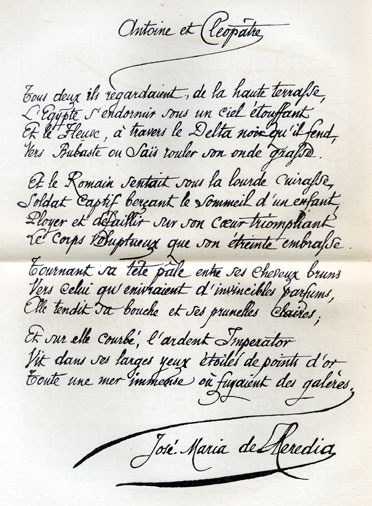 Antoine et Cléopâtre
Tous deux ils regardaient, de la haute terrasse,
L'Égypte s'endormir sous un ciel étouffant
Et le Fleuve, à travers le Delta noir qu'il fend,
Vers Bubaste ou Saïs rouler son onde grasse.
Et le Romain sentait sous la lourde cuirasse,
Soldat captif berçant le sommeil d'un enfant,
Ployer et défaillir sur son cœur triomphant
Le corps voluptueux que son étreinte embrasse.
Tournant sa tête pâle entre ses cheveux bruns
Vers celui qu'enivraient d'invincibles parfums,
Elle tendit sa bouche et ses prunelles claires;
Et sur elle courbé, l'ardent Imperator
Vit dans ses larges yeux étoilés de points d'or
Toute une mer immense où fuyaient des galères.
José-Maria de Heredia